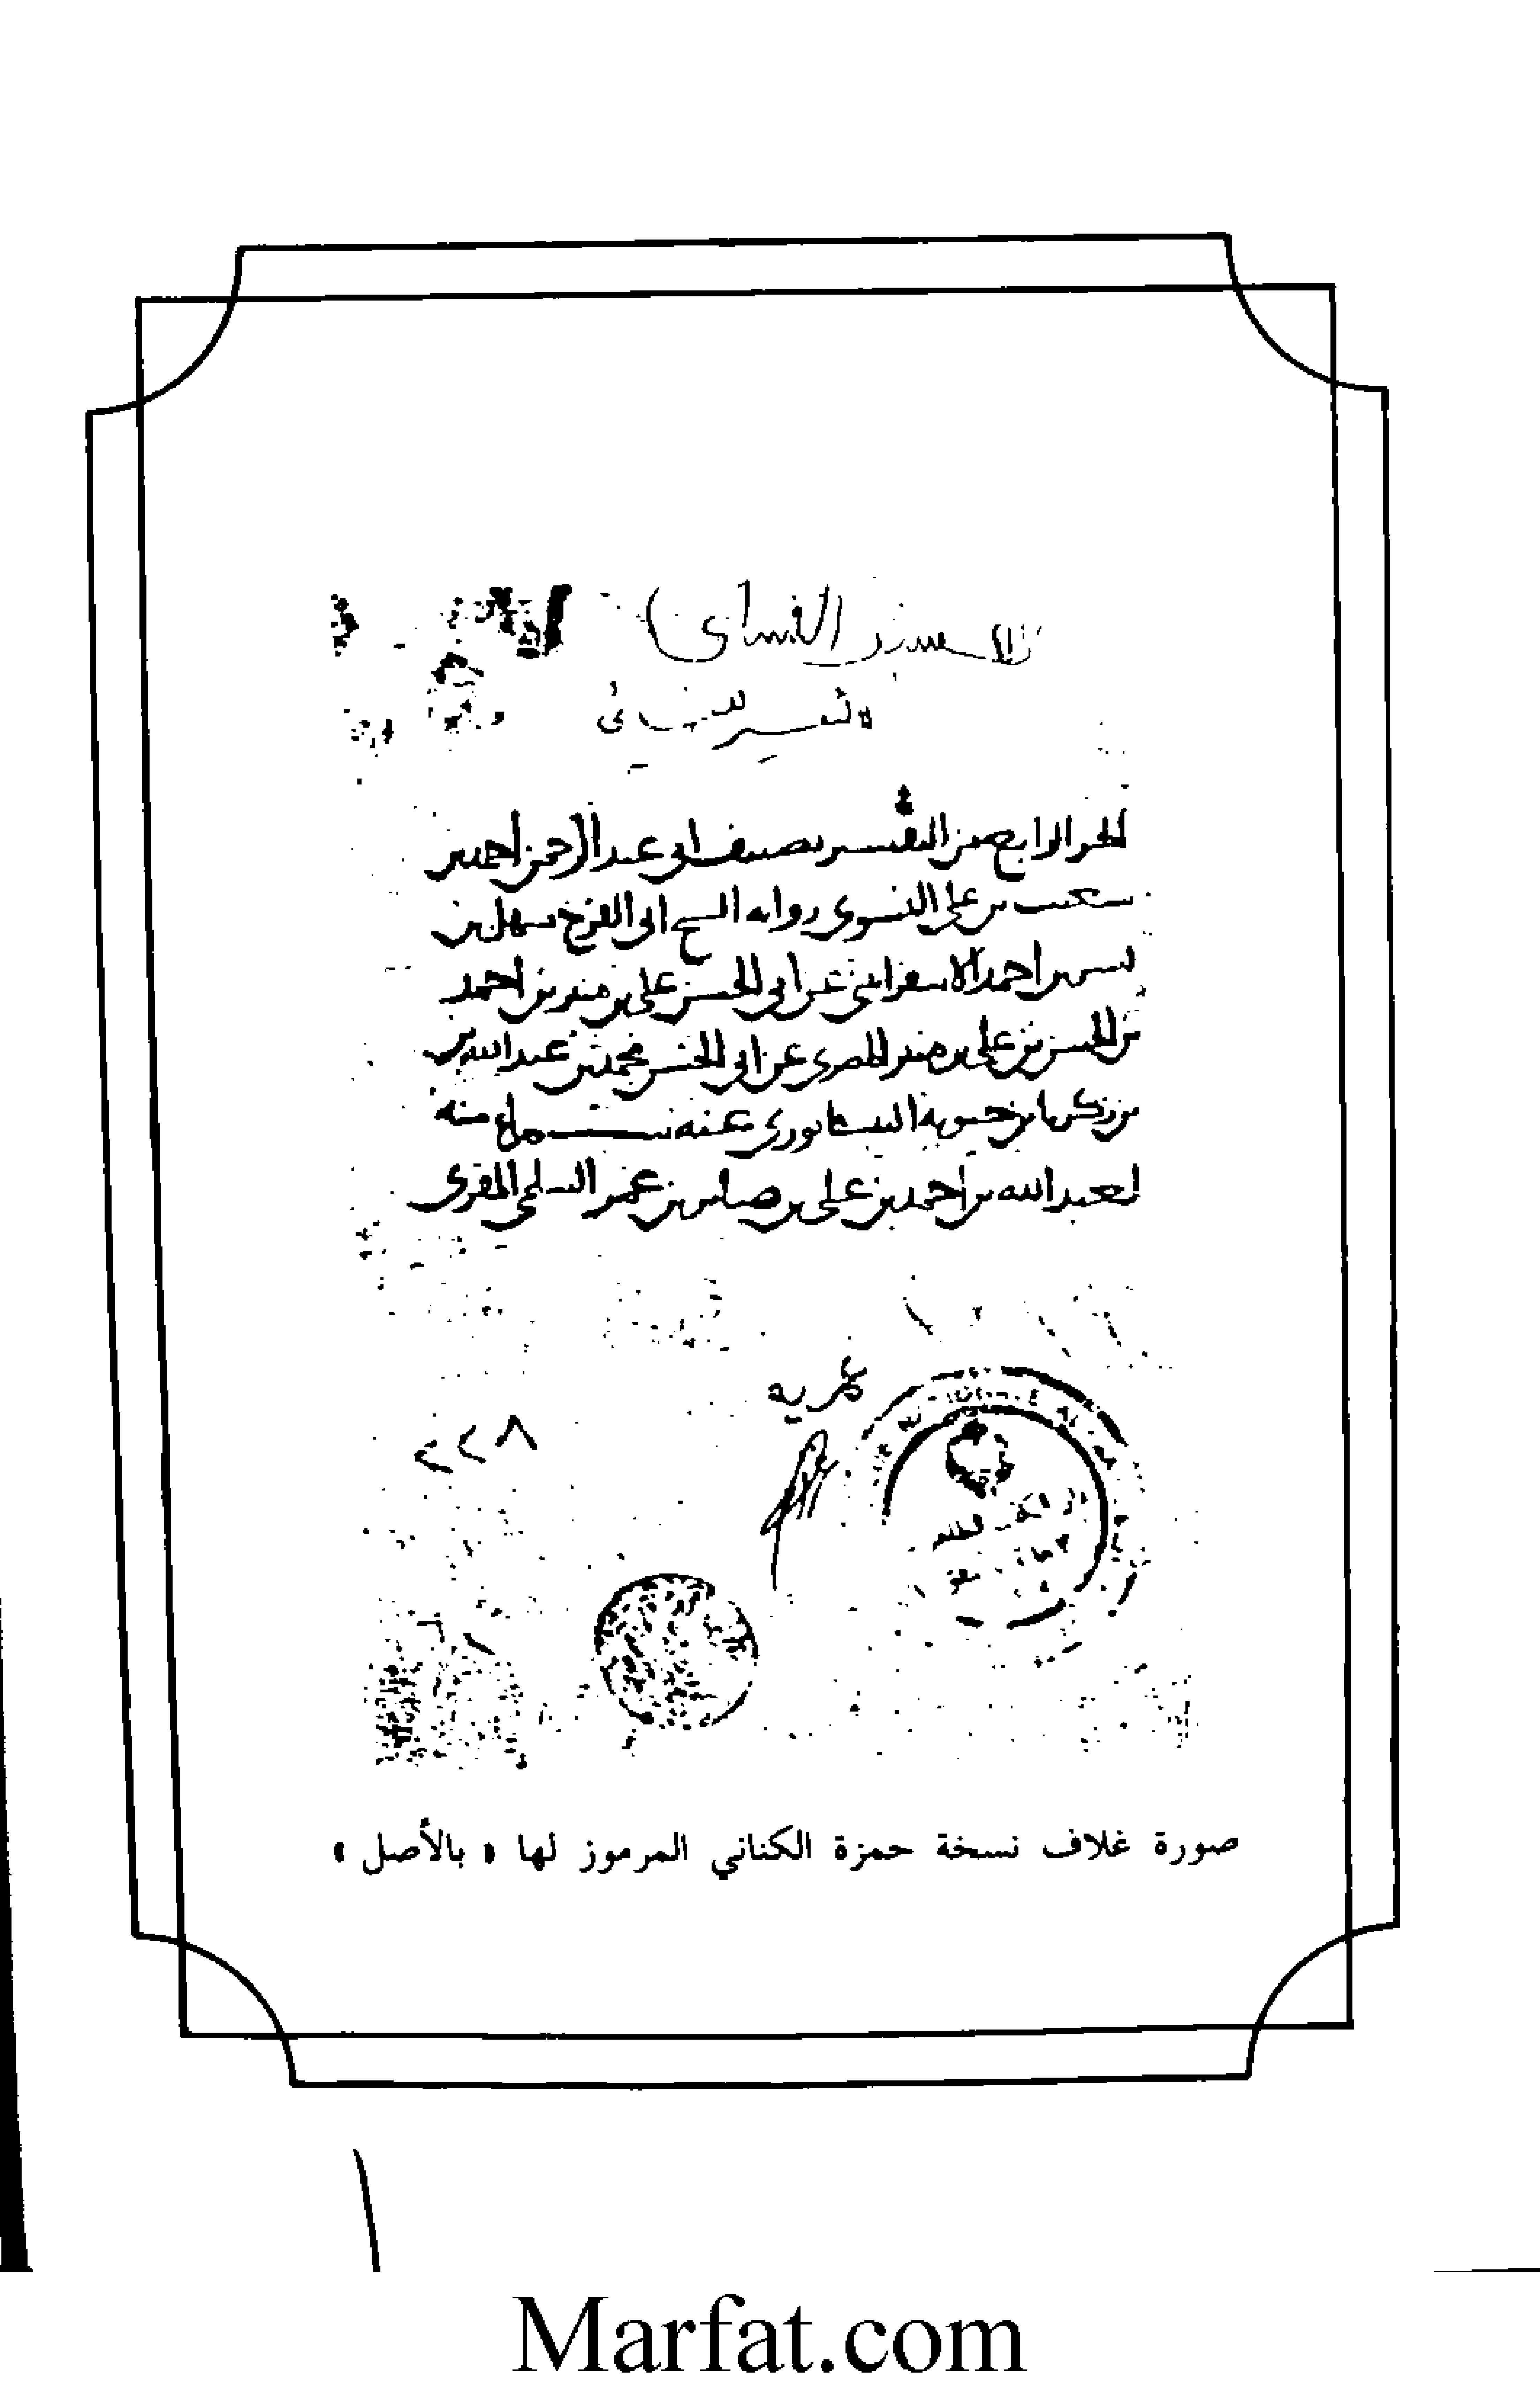 تفسير النسائي
الجزء الرابع من التفسير تصنيف ابي عبد الرحمن احمد بن
شعيب بن علي النسوي رواية الشيخ ابي الفرج سهل بن
بشر بن احمد الاسفرايني عن ابي الحسن علي بن منير بن احمد
بن الحسن بن علي بن منير المصري عن ابي الحسن محمد بن عبد الله بن
بن زكريا بن حيويه النيسابوري عنه سماع منه
لعبد الله بن احمد بن علي بن صابر بن عمر السلمي المقري
عمريه
٢٢٨
صورة غلاف نسخة حمزة الكناني المرموز لها « بالأصل »
Marfat.com